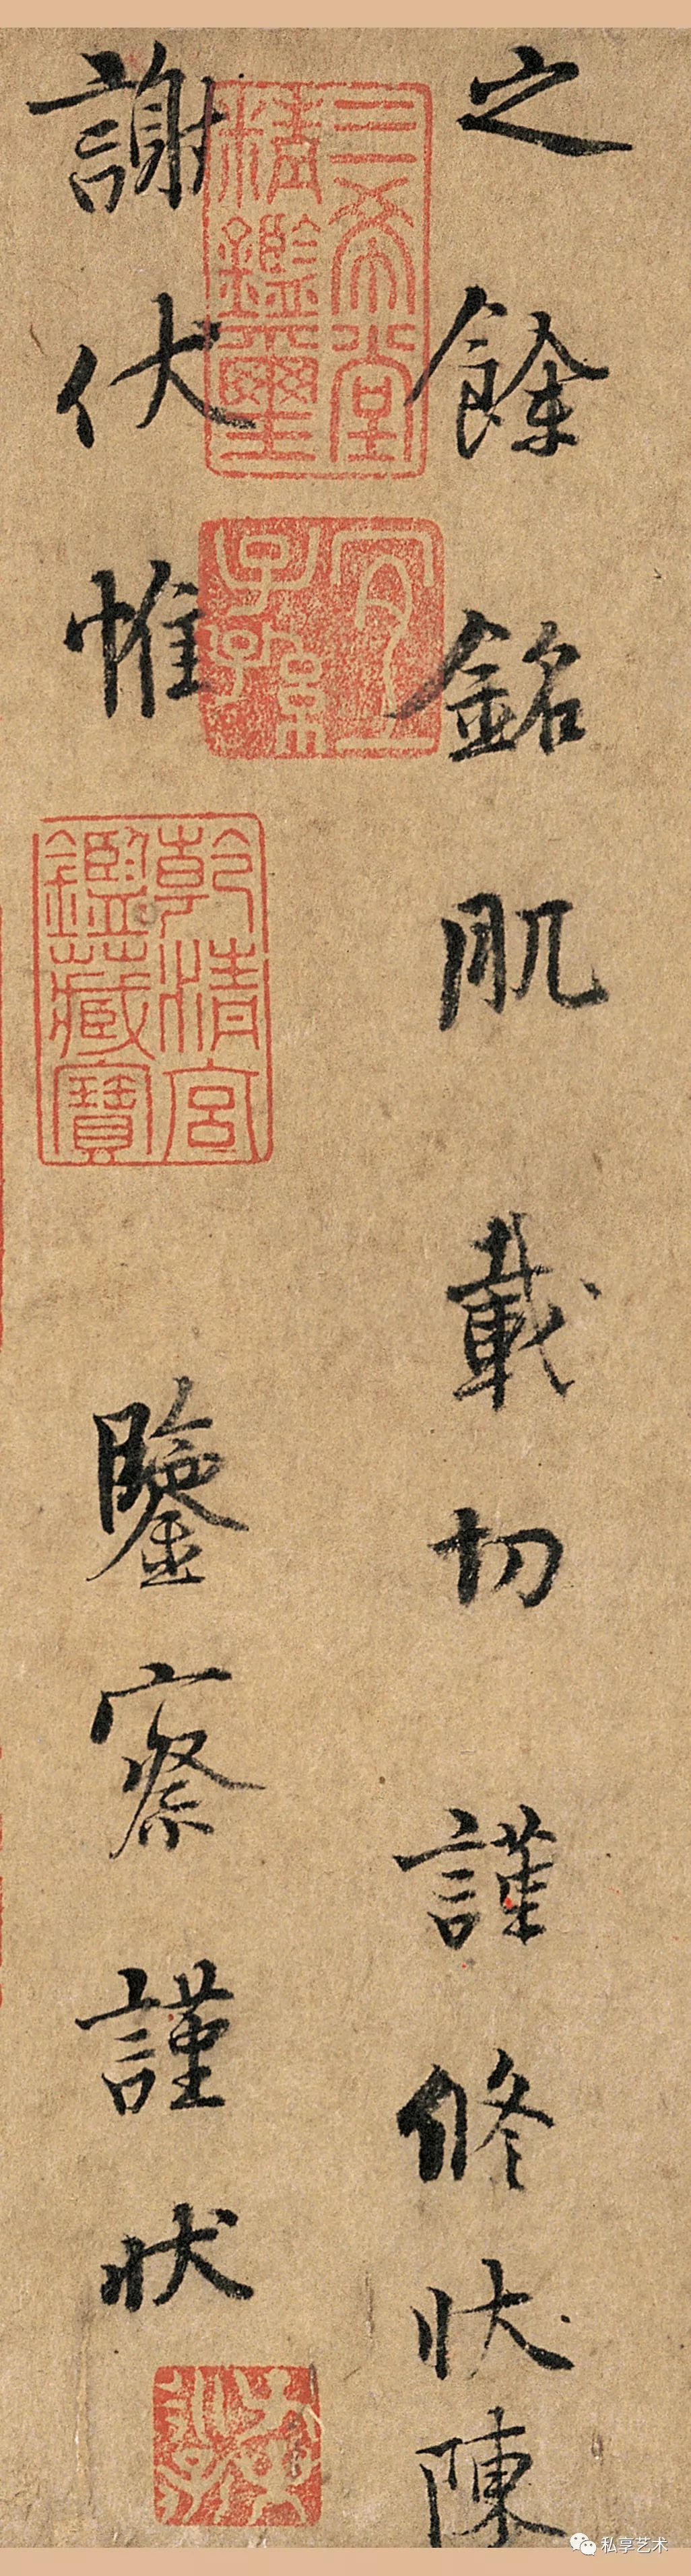 之餘銘肌載切謹修狀陳
謝伏惟
鑒察謹狀
三希堂
精鑑璽
宜
子孫
乾清宮
鑑藏寶
私享艺术